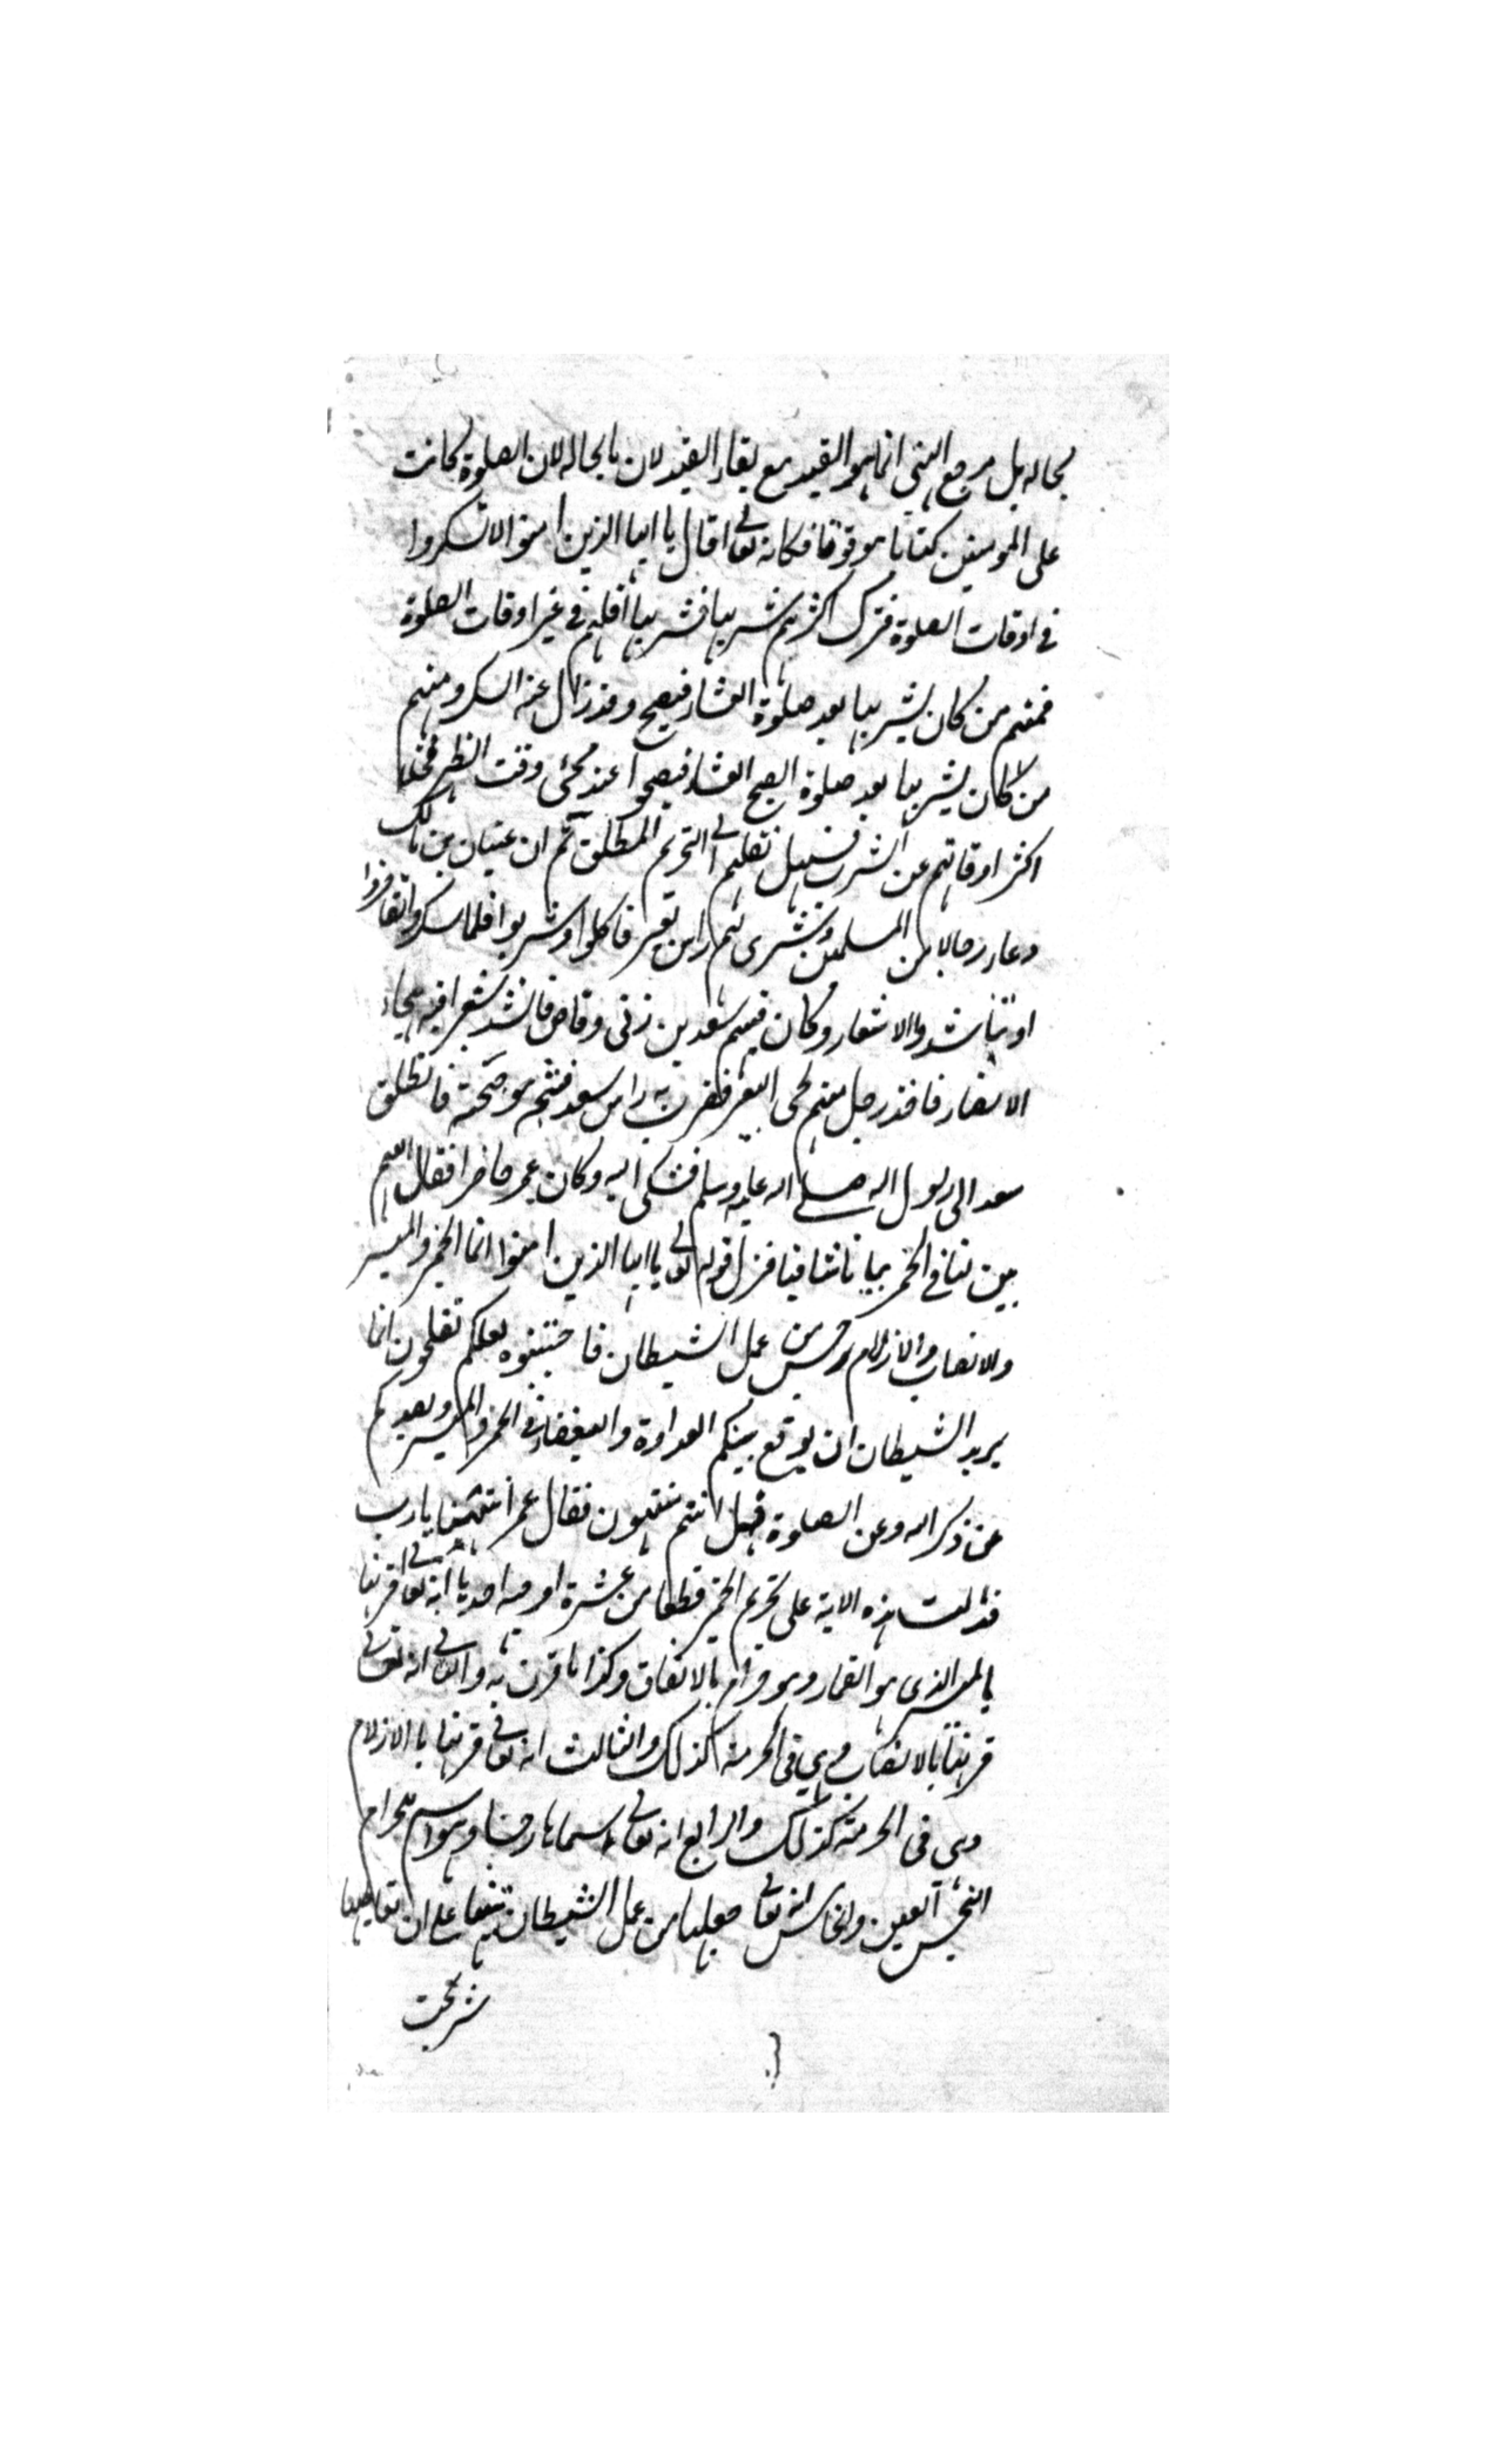 بحاله بل مرجع النهي انما هو القيد مع بقاء القيد لان بالحاله لان الصلوة كانت
على المومنين كتابا موقوتا فكانه تعالى قال يا ايها الذين امنوا لا تسكروا
في اوقات الصلوة فترك اكثرهم شربها فشربها اقلهم في غير اوقات الصلوة
فمنهم من كان يشربها بعد صلوة العشاء فيصبح وقد زال عنه السكر ومنهم
من كان يشربها بعد صلوة الصبح فيصحوا عند مجئ وقت الظهر فخلا
اكثر اوقاتهم عن الشرب فسهل نقلهم الى التحريم المطلق ثم ان عتبان بن مالك
دعا رجالا من المسلمين وشوى لهم راس بعير فاكلوا وشربوا فلما سكروا تفاخروا
او تناشدوا الاشعار وكان فيهم سعد بن وقاص فانشد شعرا فيه هجاء
الانصار فاخذ رجل منهم لحى البعير فضرب به راس سعد فشجه موضحة فانطلق
سعد الى رسول الله صلى الله عليه وسلم فشكى اليه وكان عمر حاضرا فقال اللهم
بين لنا في الخمر بيانا شافيا فنزل قوله تعالى يا ايها الذين امنوا انما الخمر والميسر
والانصاب والازلام رجس من عمل الشيطان فاجتنبوه لعلكم تفلحون انما
يريد الشيطان ان يوقع بينكم العداوة والبغضاء في الخمر والميسر ويصدكم
عن ذكر الله وعن الصلوة فهل انتم منتهون فقال عمر انتهينا يا رب
فدلت هذه الاية على تحريم الخمر قطعا من عشرة اوجه احدها انه تعالى قرنها
بالميسر الذي هو القمار وهو حرام بالاتفاق وكذا ما قرن به والثاني انه تعالى
قرنها بالانصاب وهي في الحرمة كذلك والثالث انه تعالى قرنها بالازلام
وهي في الحرمة كذلك والرابع انه تعالى سماها رجسا وهو اسم للحرام
النجس العين والخامس انه تعالى جعلها من عمل الشيطان تنبيها على ان تعاطيها
شر بحت